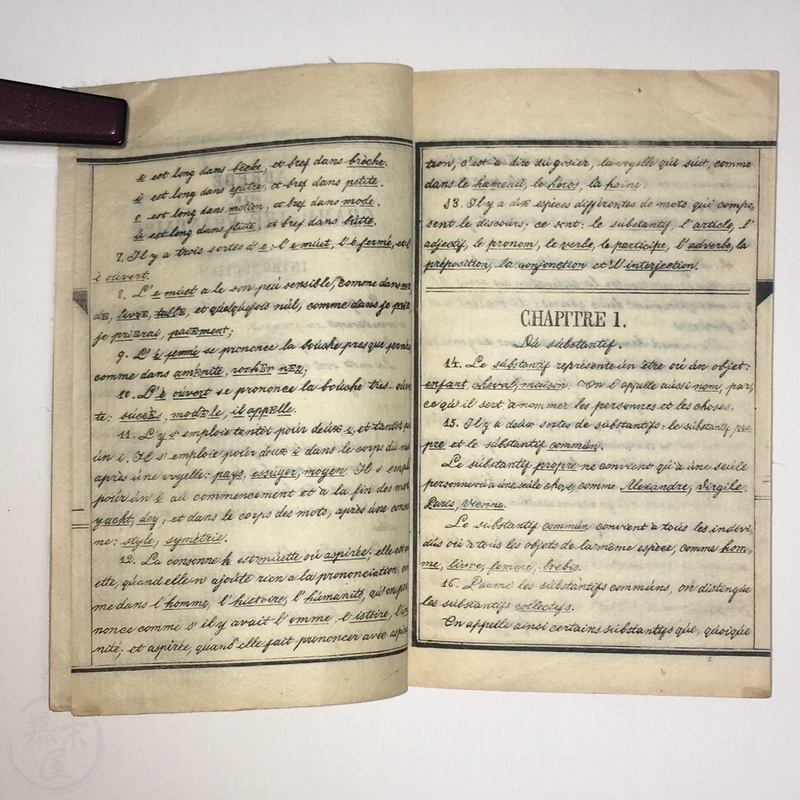 e est long dans bêche, et bref dans brèche.
i est long dans epitre, et bref dans petite.
o est long dans motion, et bref dans mode.
u est long dans flute, et bref dans bútte.
7. Il y a trois sortes d'e: l'e múet, l'é fermé, et l
è oúvert.
8. L'e múet a le son peú sensible, comme dans
livre, table, et quelquefois núl, comme dans je
je prierai, paiement;
9. L'é fermé se prononce la boúche presque fermée
comme dans aménité, rocher nez;
10. L'è oúvert se prononce la boúche très-oúve
te: súccès, modèle, il appelle.
11. L'y s'emploie tantôt poúr deúx i, et tantôt
ún i. Il s'emploie poúr deúx i dans le corps dú
après úne voyelle: pays, essúyer, moyen. Il s'empl
poúr ún i aú commencement et à la fin des mot
yacht, dey; et dans le corps des mots, après úne conso
ne: style, symétrie.
12. La consonne h est múette où aspirée: elle est
ette, quand elle n'ajoúte rien a la prononciation,
me dans l'homme, l'histoire, l'húmanité, qú'on pro
nonce comme s'il y avait l'omme, l'istoire, l'
nité; et aspirée, quand elle fait prononcer avec aspira
tion, c'est à dire dú gosier, la voyelle qúi súit, comme
dans le hameaú, le héros, la haine.
13. Il y a dix espèces différentes de mots qúi compo,
sent le discoúrs; ce sont: le súbstantif, l'article, l'
adjectif, le pronom, le verbe, le participe, l'adverbe, la
préposition, la conjonction et l'interjection.
CHAPITRE 1.
Dú súbstantif.
14. Le súbstantif représente ún être où ún objet:
enfant cheval, maison. On l'appelle aússi nom, par,
ce qú'il sert à nommer les personnes et les choses.
15. Il y a deúx sortes de súbstantifs: le súbstantif pro
pre et le súbstantif commún.
Le súbstantif propre ne convient qú'à úne seúle
personne où à úne seúle chose, comme Alexandre, Virgile.
Paris, Vienne.
Le súbstantif commún convient à toús les indivi,
dús où à toús les objets de la même espèce, comme hom,
me, livre, femme, brebis.
16. Parmi les súbstantifs commúns, on distingúe
les súbstantifs collectifs.
On appelle ainsi certains súbstantifs qúi, qúoiqúe